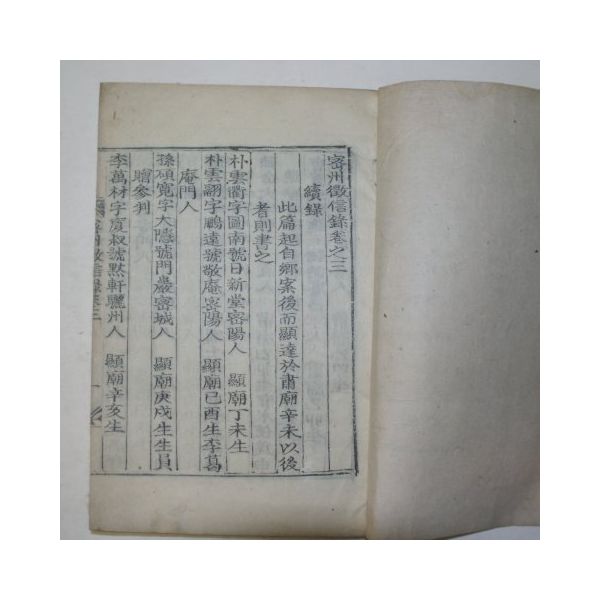 密州徵信錄卷之三
續錄
此篇起自鄕案後而顯達於肅廟辛未以後
者則書之
朴雲衢字圖南號日新堂密陽人 顯廟丁未生
朴雲翮字鵬遠號敬庵密陽人 顯廟己酉生李葛
庵門人
孫碩寬字大隱號門巖密城人 顯廟庚戌生生員
贈參判
李萬材字廈叔號黙軒驪州人 顯廟辛亥生